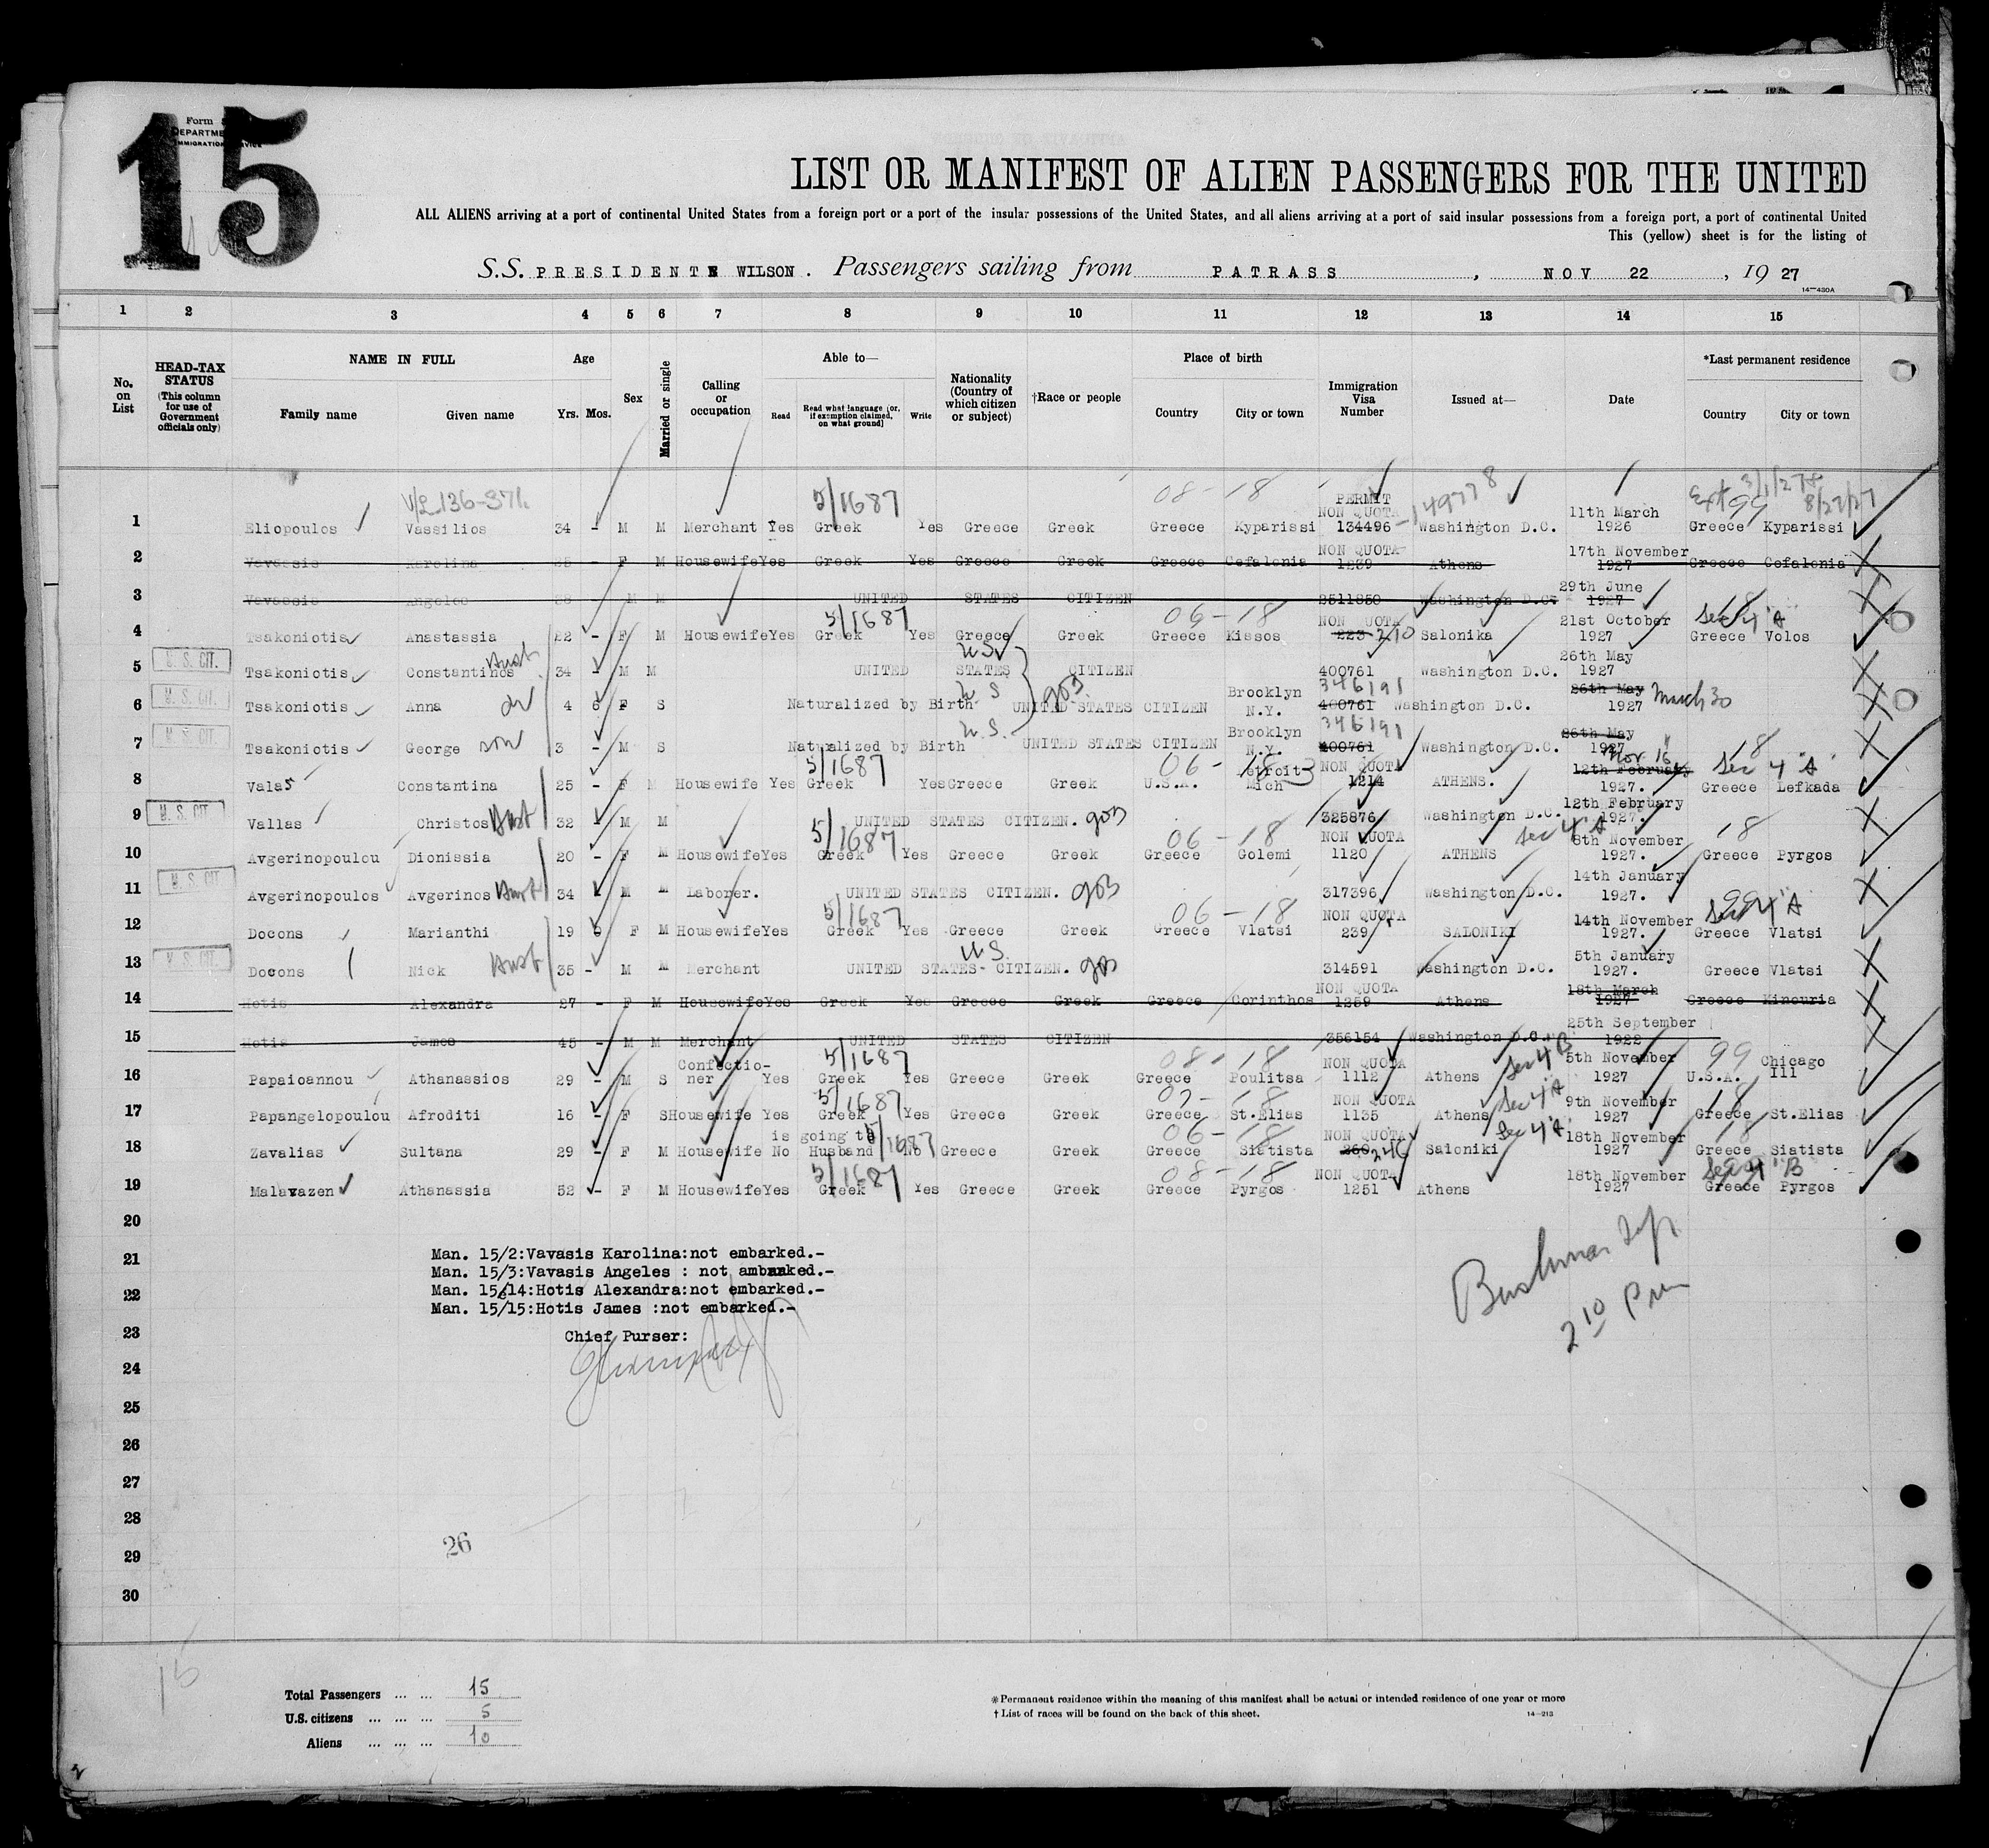 15
Form
DEPARTME
IMMIGRATION SERVICE
LIST OR MANIFEST OF ALIEN PASSENGERS FOR THE UNITED
ALL ALIENS arriving at a port of continental United States from a foreign port or a port of the insular possessions of the United States, and all aliens arriving at a port of said insular possessions from a foreign port, a port of continental United
This (yellow) sheet is for the listing of
S.S. PRESIDENTE WILSON. Passengers sailing from PATRASS, NOV 22, 19 27
14—430A
1 2 3 4 5 6 7 8 9 10 11 12 13 14 15
No. on List
HEAD-TAX STATUS (This column for use of Government officials only)
NAME IN FULL Family name Given name
Age Yrs. Mos.
Sex
Married or single
Calling or occupation
Able to— Read Read what language [or, if exemption claimed, on what ground] Write
Nationality (Country of which citizen or subject)
†Race or people
Place of birth Country City or town
Immigration Visa Number
Issued at—
Date
*Last permanent residence Country City or town
5/1687 08-18 PERMIT 149778 99 8/27/27
1 Eliopoulos Vassilios 34 - M M Merchant Yes Greek Yes Greece Greek Greece Kyparissi NON QUOTA 134496 Washington D.C. 11th March 1926 Greece Kyparissi
2 Vavassis Karolina 25 - F M Housewife Yes Greek Yes Greece Greek Greece Cefalonia NON QUOTA 1239 Athens 17th November 1927 Greece Cefalonia
3 Vavassis Angelos 28 - M M UNITED STATES CITIZEN 2511850 Washington D.C. 29th June 1927
5/1687 06-18 18 Sec 4 "A"
4 Tsakoniotis Anastassia 22 - F M Housewife Yes Greek Yes Greece Greek Greece Kissos NON QUOTA 223 210 Salonika 21st October 1927 Greece Volos
U.S. CIT.
5 Tsakoniotis Constantinos Husb 34 - M M UNITED STATES CITIZEN U.S. 400761 Washington D.C. 26th May 1927
U.S. CIT.
6 Tsakoniotis Anna dr 4 6 F S Naturalized by Birth U S UNITED STATES CITIZEN Brooklyn N.Y. 346191 400761 Washington D.C. 26th May 1927 March 30
U.S. CIT.
7 Tsakoniotis George son 3 - M S Naturalized by Birth U.S. UNITED STATES CITIZEN Brooklyn N.Y. 346191 400761 Washington D.C. 26th May 1927
5/1687 06-18 Nov 16 18 Sec 4 "A"
8 Valas Constantina 25 - F M Housewife Yes Greek Yes Greece Greek U.S.A. Detroit Mich NON QUOTA 1214 ATHENS. 12th February 1927. Greece Lefkada
U.S. CIT.
9 Vallas Christos Husb 32 M M UNITED STATES CITIZEN. 325876 Washington D.C. 12th February 1927.
5/1687 06-18 Sec 4 "A" 18
10 Avgerinopoulou Dionissia 20 - F M Housewife Yes Greek Yes Greece Greek Greece Golemi NON QUOTA 1120 ATHENS 8th November 1927. Greece Pyrgos
U.S. CIT
11 Avgerinopoulos Avgerinos Husb 34 M M Laborer. UNITED STATES CITIZEN. 317396 Washington D.C. 14th January 1927.
5/1687 06-18 Sec 4 "A"
12 Docons Marianthi 19 F M Housewife Yes Greek Yes Greece Greek Greece Vlatsi NON QUOTA 239 SALONIKI 14th November 1927. Greece Vlatsi
U.S. CIT.
13 Docons Nick Husb 35 - M M Merchant UNITED STATES CITIZEN. U.S. 314591 Washington D.C. 5th January 1927. Greece Vlatsi
14 Hotis Alexandra 27 - F M Housewife Yes Greek Yes Greece Greek Greece Corinthos NON QUOTA 1259 Athens 18th March 1927 Greece Minouria
15 Hotis James 45 - M M Merchant UNITED STATES CITIZEN 356154 Washington D.C. 25th September 1922
5/1687 08-18 Sec 4 B 99
16 Papaioannou Athanassios 29 - M S Confectio-ner Yes Greek Yes Greece Greek Greece Poulitsa NON QUOTA 1112 Athens 5th November 1927 U.S.A. Chicago Ill
5/1687 07-18 Sec 4 "A" 18
17 Papangelopoulou Afroditi 16 - F S Housewife Yes Greek Yes Greece Greek Greece St.Elias NON QUOTA 1135 Athens 9th November 1927 Greece St.Elias
5/1687 06-18 Sec 4 "A" 18
18 Zavalias Sultana 29 - F M Housewife No is going to Husband No Greece Greek Greece Siatista NON QUOTA 260 246 Saloniki 18th November 1927 Greece Siatista
5/1687 08-18 Sec 4 "B"
19 Malavazen Athanassia 52 - F M Housewife Yes Greek Yes Greece Greek Greece Pyrgos NON QUOTA 1251 Athens 18th November 1927 Greece Pyrgos
20
21
22
23
24
25
26
27
28
29
30
Man. 15/2:Vavasis Karolina:not embarked.-
Man. 15/3:Vavasis Angeles : not ambarked.-
Man. 15/14:Hotis Alexandra:not embarked.-
Man. 15/15:Hotis James :not embarked.-
Chief Purser:
2 10 Pm
26
Total Passengers ... ... 15
U.S. citizens ... ... ... 5
Aliens ... ... ... 10
*Permanent residence within the meaning of this manifest shall be actual or intended residence of one year or more
† List of races will be found on the back of this sheet.
14—213